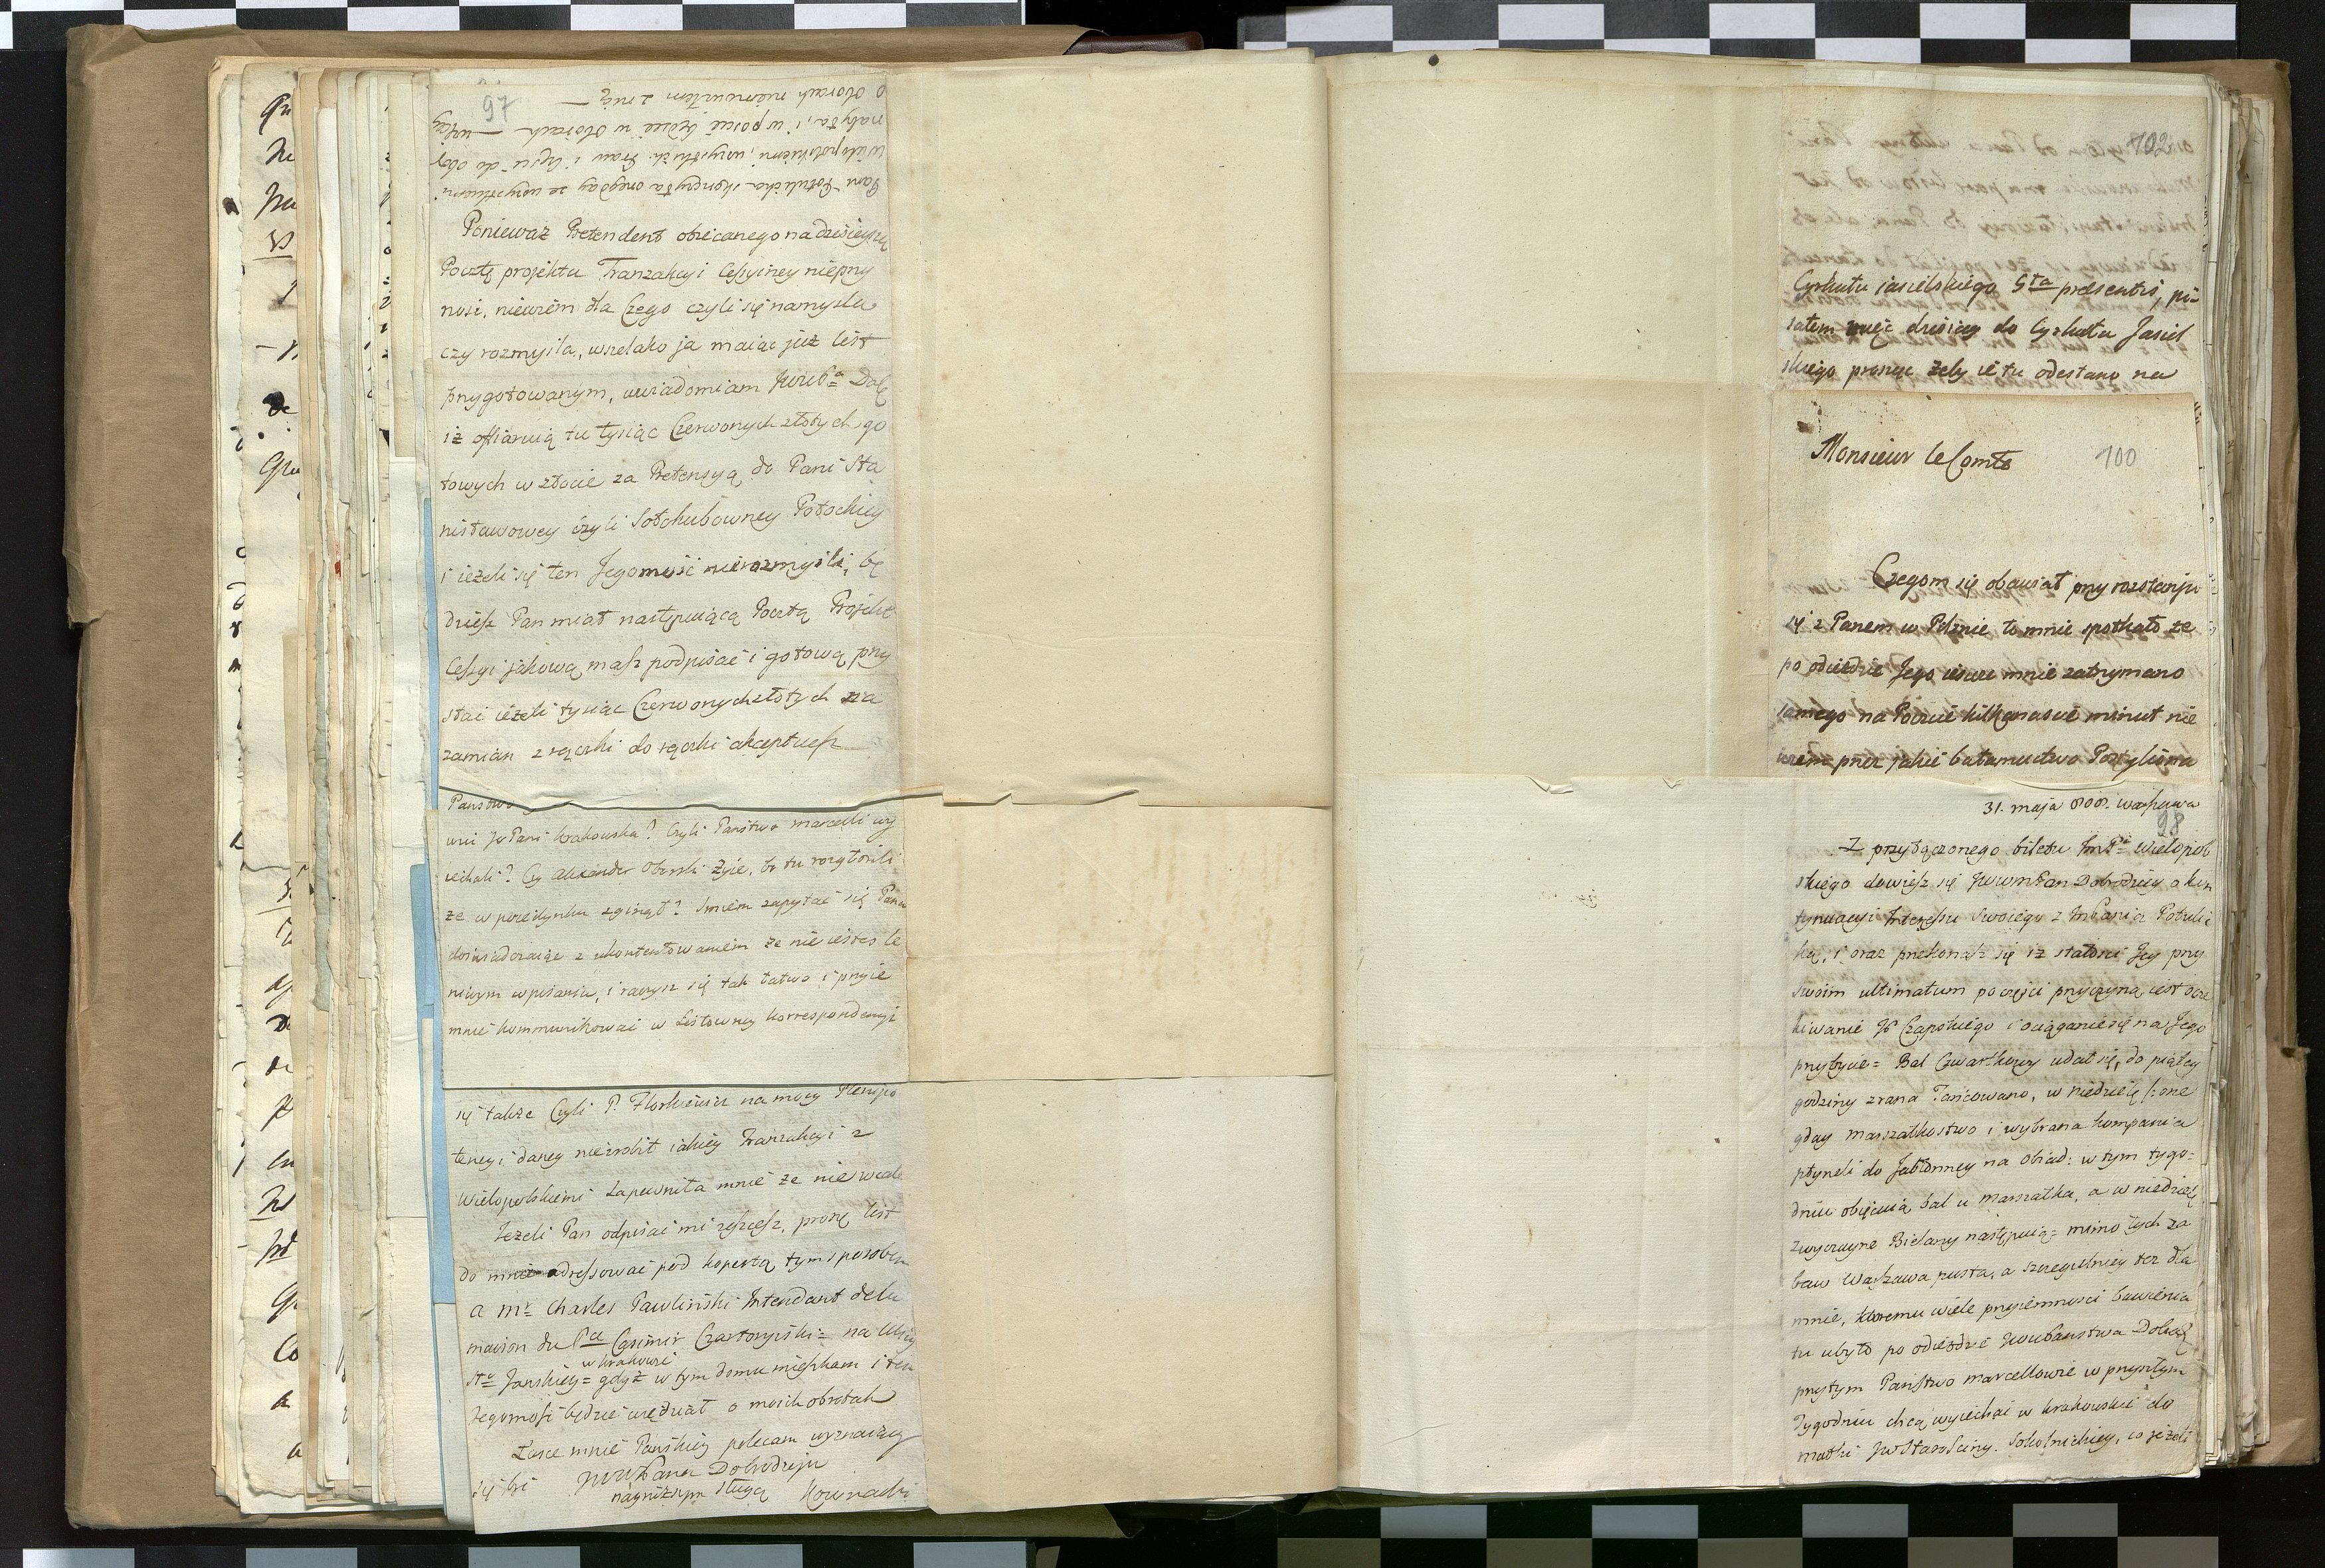 97
Pani Potulicka skończyła onegday ze wszystkiemi
Wielopolskiemi, wszystkich
nabyła, i w poście będzie w Oborach
o Oborach niemówiłem z nią —
Ponieważ Pretendent obiecanego na dzisieyszą
Pocztę projektu Tranzakcyi Cessyiney nieprzy
nosi, niewiem dla Czego czyli się namyśla
czy rozmyśla, wszelako ja maiąc już list
przygotowanym, uwiadomiam JWWPa Dob
iż offiaruią tu tysiąc Czerwonych złotych go
towych w złocie za Pretensyą do Pani Sta
nisławowey czyli Sołohubowney Potockiey
i ieżeli się ten Jegomość nierozmyśli, bę
dziesz Pan miał następuiącą Pocztą Projekt
Cessyi jakową masz podpisać i gotową przy
słać ieżeli tysiąc Czerwonych złotych na
zamian z rączki do rączki akceptuiesz
Państwo
wni JW Pani Krakowska? Czyli Państwo Marcelli wy
iechali? Czy Alexander Oborski żyie, bo tu rozgłosili
że w poiedynku zginął? Smiem zapytać się Pana
doświadczaiąc z ukontentowaniem że nie iesteś le
niwym w pisaniu, i raczysz się tak łatwo i przyie
mnie kommunikować w Listowney korrespondencyi
się także Czyli P. Florkiewicz na mocy Plenipo
tencyi daney niezrobił iakiey Tranzakcyi z
Wielopolskiemi zapewniła mnie że nie wcale
Jeżeli Pan odpisać mi zechcesz, proszę list
do mnie adressować pod kopertą tym sposobem
a Mr Charles Pawliński Intendant de la
maison du Pce Casimir Czartoryiski = na Ulicy
w Krakowie
Sto Janskiey = gdyż w tym domu mieszkam i ten
Jegomość będzie wiedział o moich obrotach
Łasce mnie Pańskiey polecam wyznaiąc
się być JWWPana Dobrodzieja
nayniższym sługą
102
Cyrkułu jasielskiego 5ta praesentis, pi-
sałem więc dzisiay do Cyrkułu Jasiel
skiego prosząc żeby ie tu odesłano na
Monsieur le Comte
100
Czegom się obawiał przy rozstaniu
się z Panem w Pilznie to mnie spotkało że
po odieździe Jego ieszcze mnie zatrzymano
samego na Poczcie kilkanaście minut nie
wiem przez jakie bałamuctwo Postyliona
31. maja 808. Warszawa
98
Z przyłączonego biletu ImPa Wielopol
skiego dowiesz się JWWmPan Dobrodziey o kon
tynuacyi Interessu swoiego z ImPanią Potulic
ką, i oraz przekonasz się iż stałości Jey przy
swoim ultimatum po części przyczyną iest ocze
kiwanie JP Czapskiego i ociąganie się na Jego
przybycie = Bal Czwartkowy udał się, do piątey
godziny zrana Tańcowano, w niedzielę
gday Marszałkostwo i wybrana kompania
płyneli do Jabłonney na Obiad: w tym tygo=
dniu obięcuią bal u Marszałka, a w niedzielę
zwyczayne Bielany następuią = mimo tych za
baw Warszawa pusta, a szczegulniey też dla
mnie, któremu wiele przyiemności bawienia
tu ubyło po odieździe JWWPaństwa Dobdź
przytym Państwo Marcellowie w przyszłym
Tygodniu chcą wyiechać w Krakowskie do
matki JW Starościny Sokolnickiey, co jeżeli